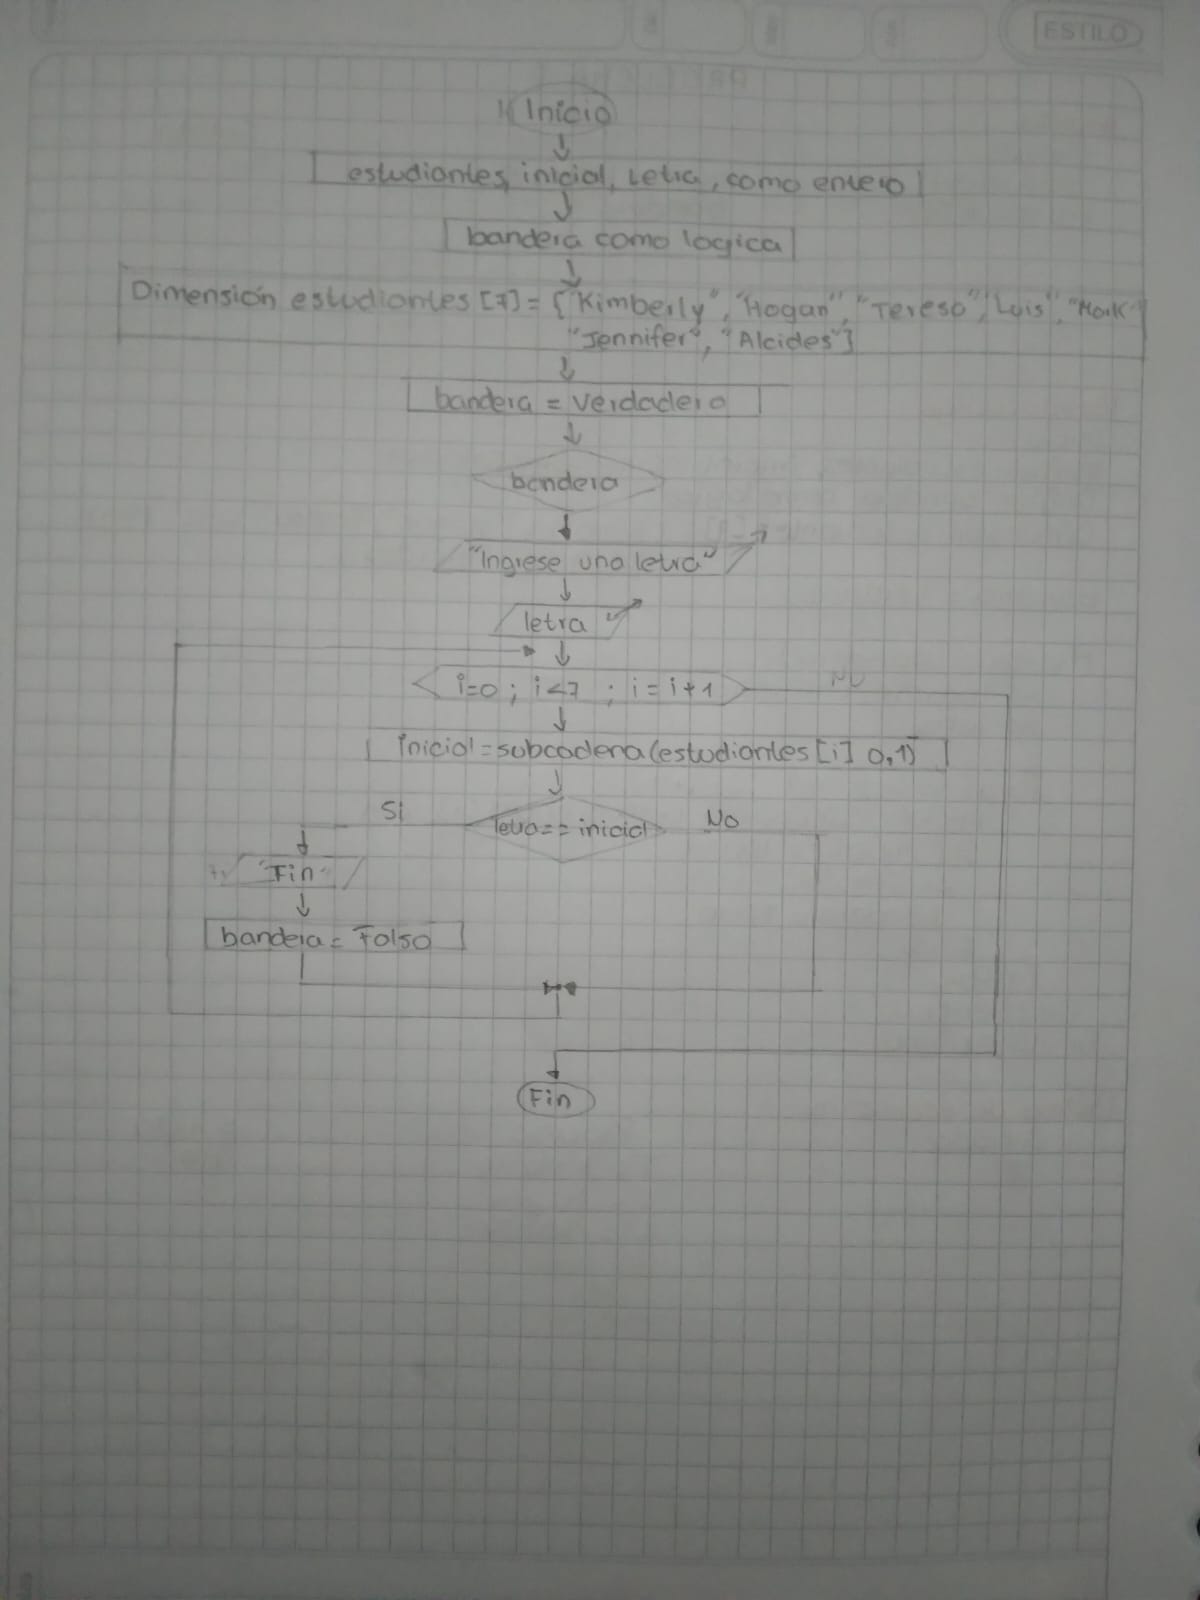 ESTILO
Inicio
estudiantes, inicial, Letra, como entero
bandera como logica
Dimensión estudiantes [7] = {"Kimberly", "Hogan", "Tereso", "Luis", "Mark"
"Jennifer", "Alcides"}
bandera = Verdadero
bandera
"Ingrese una letra"
letra
i=0 ; i<7 ; i=i+1
inicial = subcadena(estudiantes [i] 0,1)
Si
letra == inicial
No
"Fin"
bandera = Falso
Fin